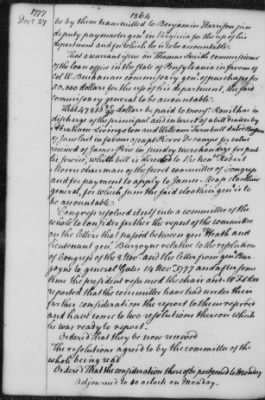 1777
Dec.r 27
1864
be by them transmitted to Benjamin Harrison jun
deputy paymaster gen.l in Virginia for the use of his
department and for which he is to be accountable.
That a warrant issue on Thomas Smith commissioner
of the loan office in the state of Pensylvania in favour of
Col W. Buchanan commissary gen.l of purchases for
dollars for the use of his department, the said
commissary general to be accountable.
That dollars be paid to
discharge of the principal and interest of a bill drawn by
Abraham Livingston and William Turnbull dated
of June last in favour of
of James
which bill is directed to the hon.ble Robert
Morris chairman of the secret committee of Congress
and for payment to apply to James Mease clothier
general, for which sum the said clothier gen.l is to
be accountable.
Congress resolved itself into a committee of the
whole to consider farther the report of the committee
on the letters that passed between gen.l Heath and
lieutenant gen.l Burgoyne relative to the resolution
of Congress of the 8 Nov.r and the letter from gen Bur-
goyne to general Gates 14 Nov.r 1777 and after some
time the president resumed the chair and
reported that the committee have had under their
farther consideration the report to them referred
and have come to two resolutions thereon which
he was ready to report.
Ordered that they be now received
The resolutions agreed to by the committee of the
whole being read
Ordered That the consideration thereof be postponed to Monday
adjourned to 10 o'clock on Monday.